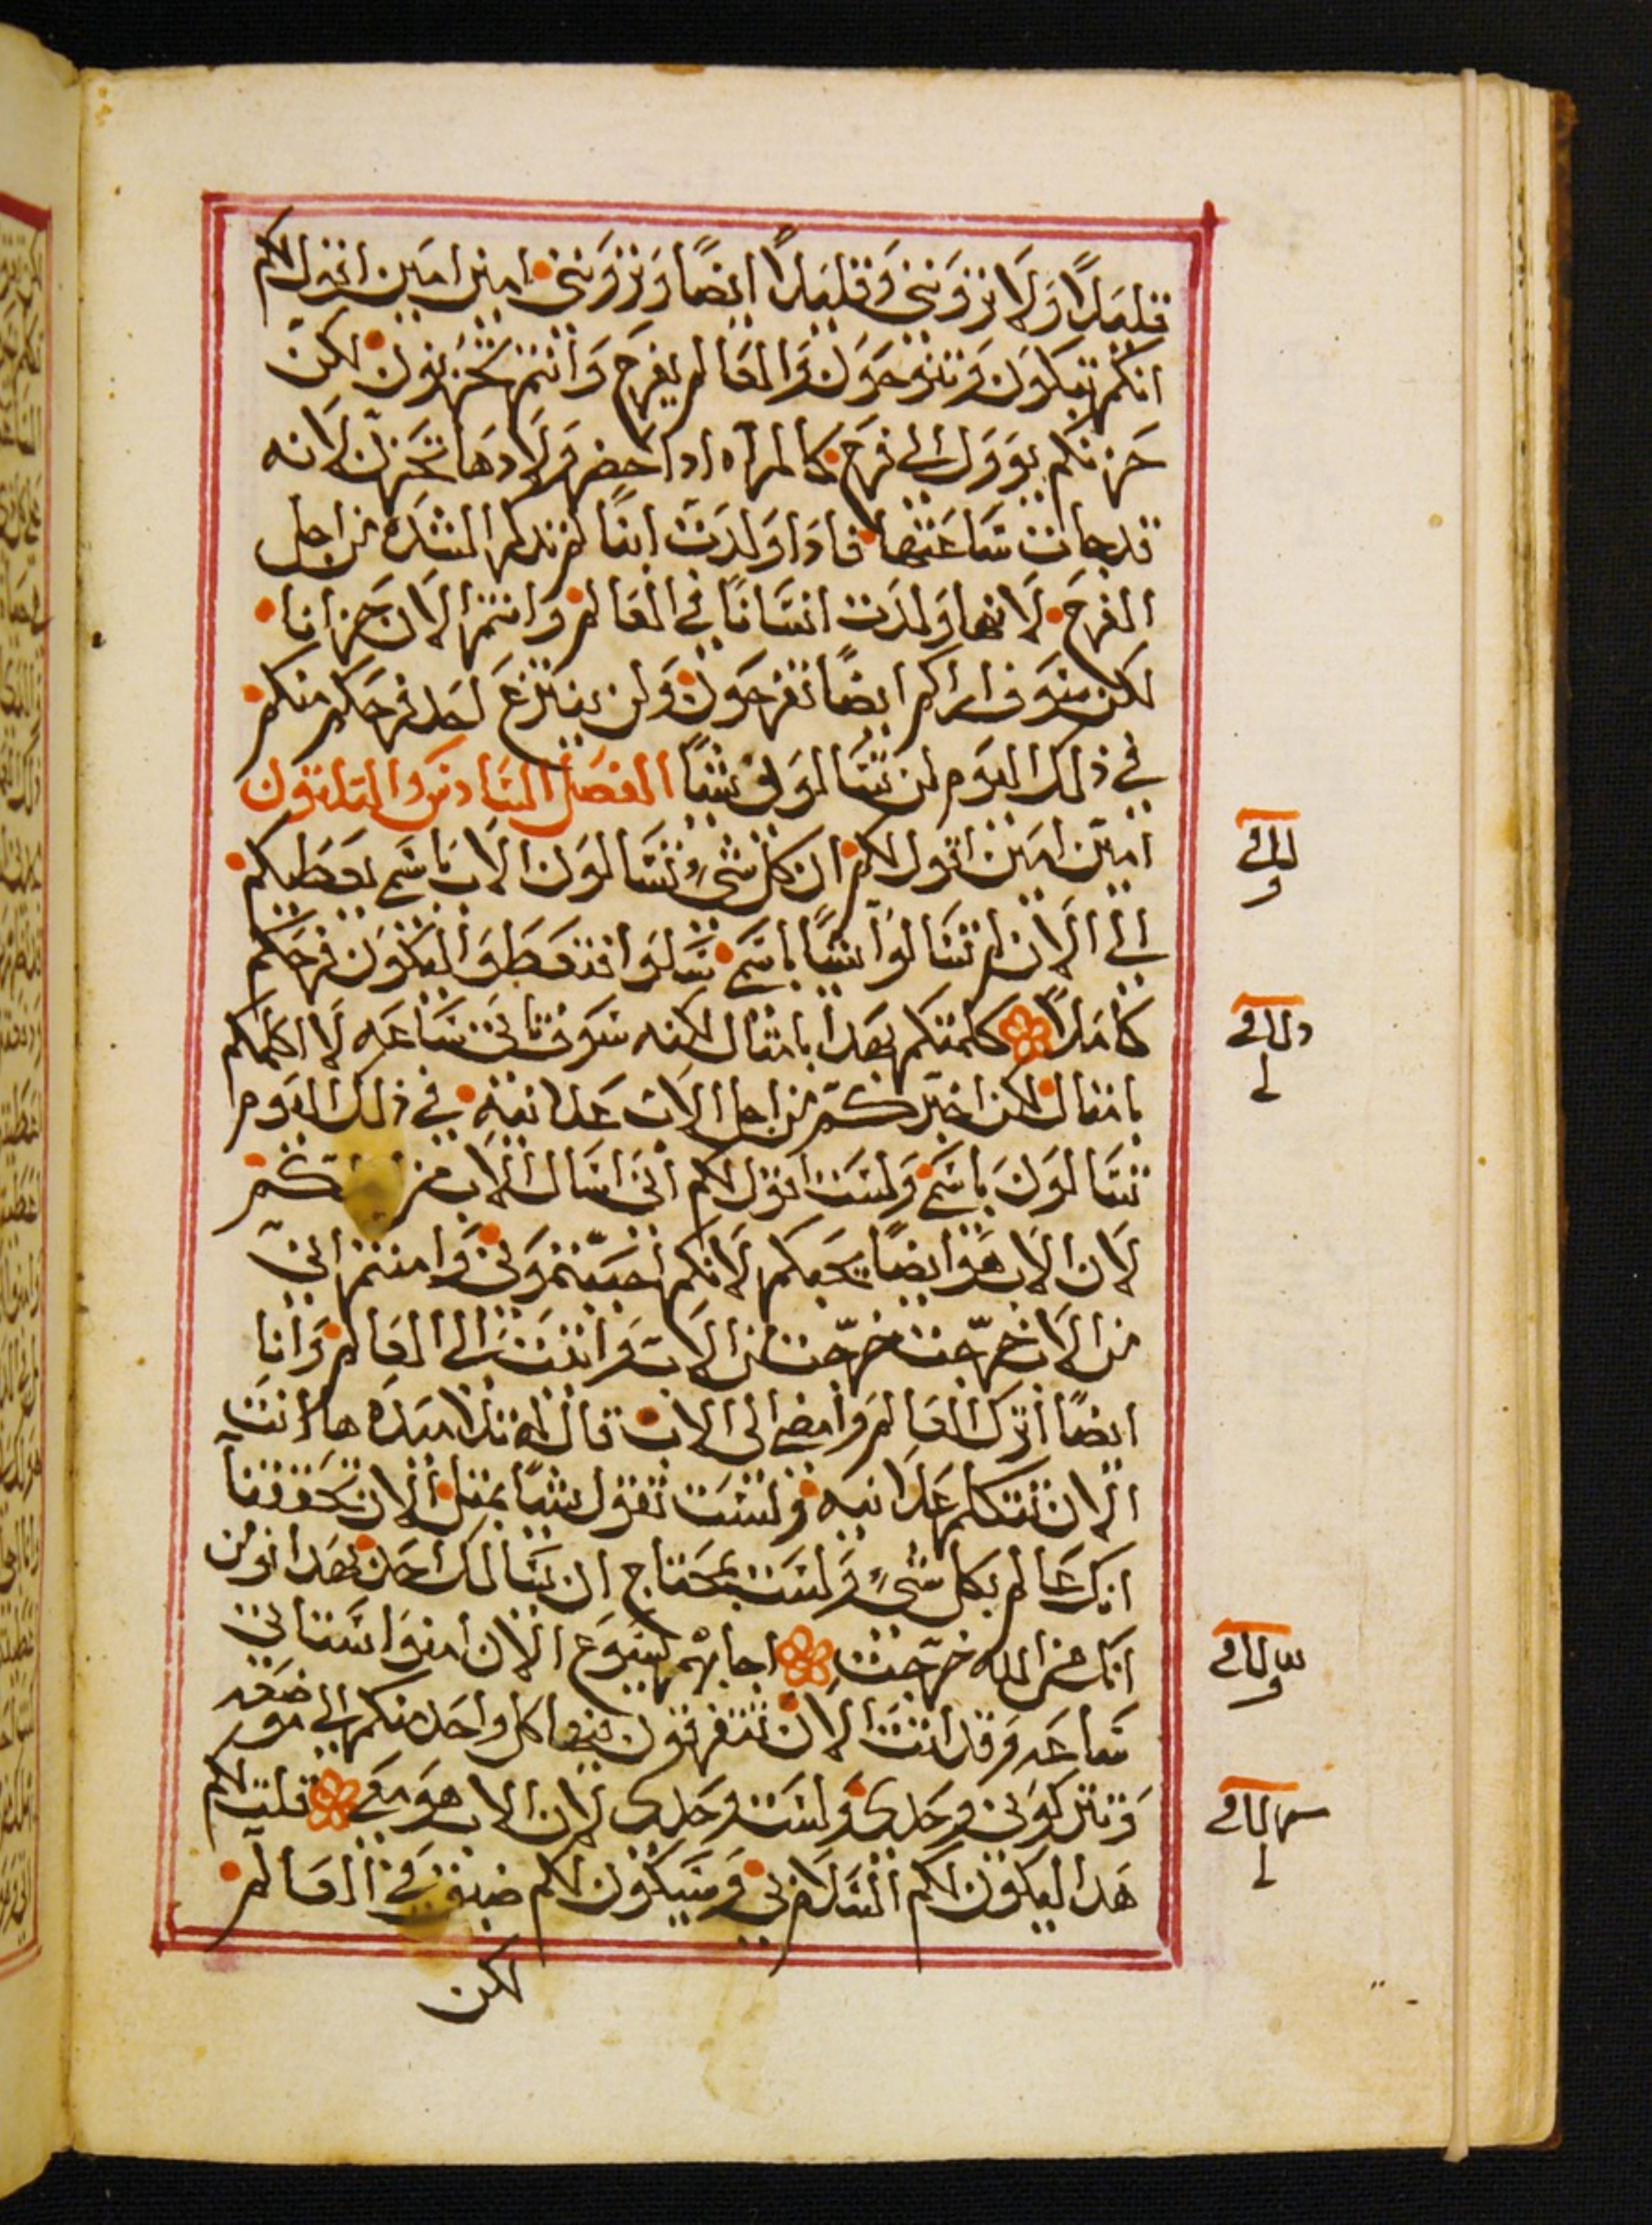 قليلاً ولا تروننى وقليلاً ايضاً وتروننى امين امين اقول لكم
انكم تبكون وتنوحون والعالم يفرح وانتم تحزنون لكن
حزنكم يوول الى فرح كالمراه اذا حضر ولادها تحزن لانه
قد جات ساعتها فاذا ولدت ابناً لم تذكر الشده من اجل
الفرح لانها ولدت انساناً في العالم وانتم الان حزانا
لكن سوف اراكم ايضاً تفرحون ولن ينتزع احد فرحكم منكم
في ذلك اليوم لن تسالونى شياً الفصل السادس والثلثون
امين امين اقول لكم ان كل شىء تسالون الاب باسمى يعطيكم
الى الان لم تسالوا شياً باسمى سلوا فتعطوا ليكون فرحكم
كاملاً كلمتكم بهدا بامثال لكنه سوف تاتى ساعه لا اكلمكم
بامثال لكن اخبركم من اجل الاب علانيه في ذلك اليوم
تسالون باسمى ولست اقول لكم انى اسال الاب من
لان الاب هو ايضاً يحبكم لانكم احببتمونى وامنتم انى
من الاب خرجت خرجت من الاب واتيت الى العالم وانا
ايضاً اترك العالم وامضى الى الاب قال له تلاميده ها انت
الان تتكلم علانيه ولست تقول شياً بمثل الان تحققنا
انك عالم بكل شىء ولست بمحتاج ان يسالك احد بهدا نومن
انك من الله خرجت اجابهم يسوع الان امنوا ستاتى
ساعه وقد اتت الان تتفرقون فيها كل واحد منكم الى موضعه
وتتركونى وحدى ولست وحدى لان الاب هو معى قلت لكم
هدا ليكون لكم السلام بى وسيكون لكم ضيق في العالم
لكن